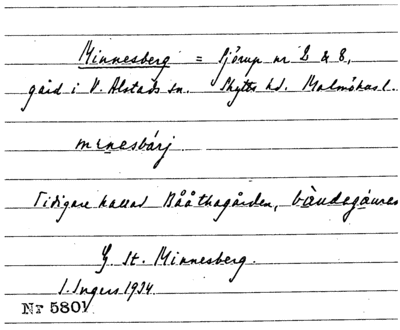 Minnesberg = Sjörup nr 2 & 8,
gård i V. Alstads sn. Skytts hd. Malmöhus l.
mɩnesbárj
Tidigare kallad Bååthagården, bàudegáuren
Jfr st. Minnesberg.
I. Ingers 1934
Nr 5801